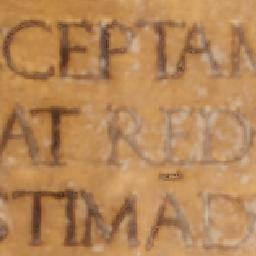 CEPTAM
AT RED
STIMAD